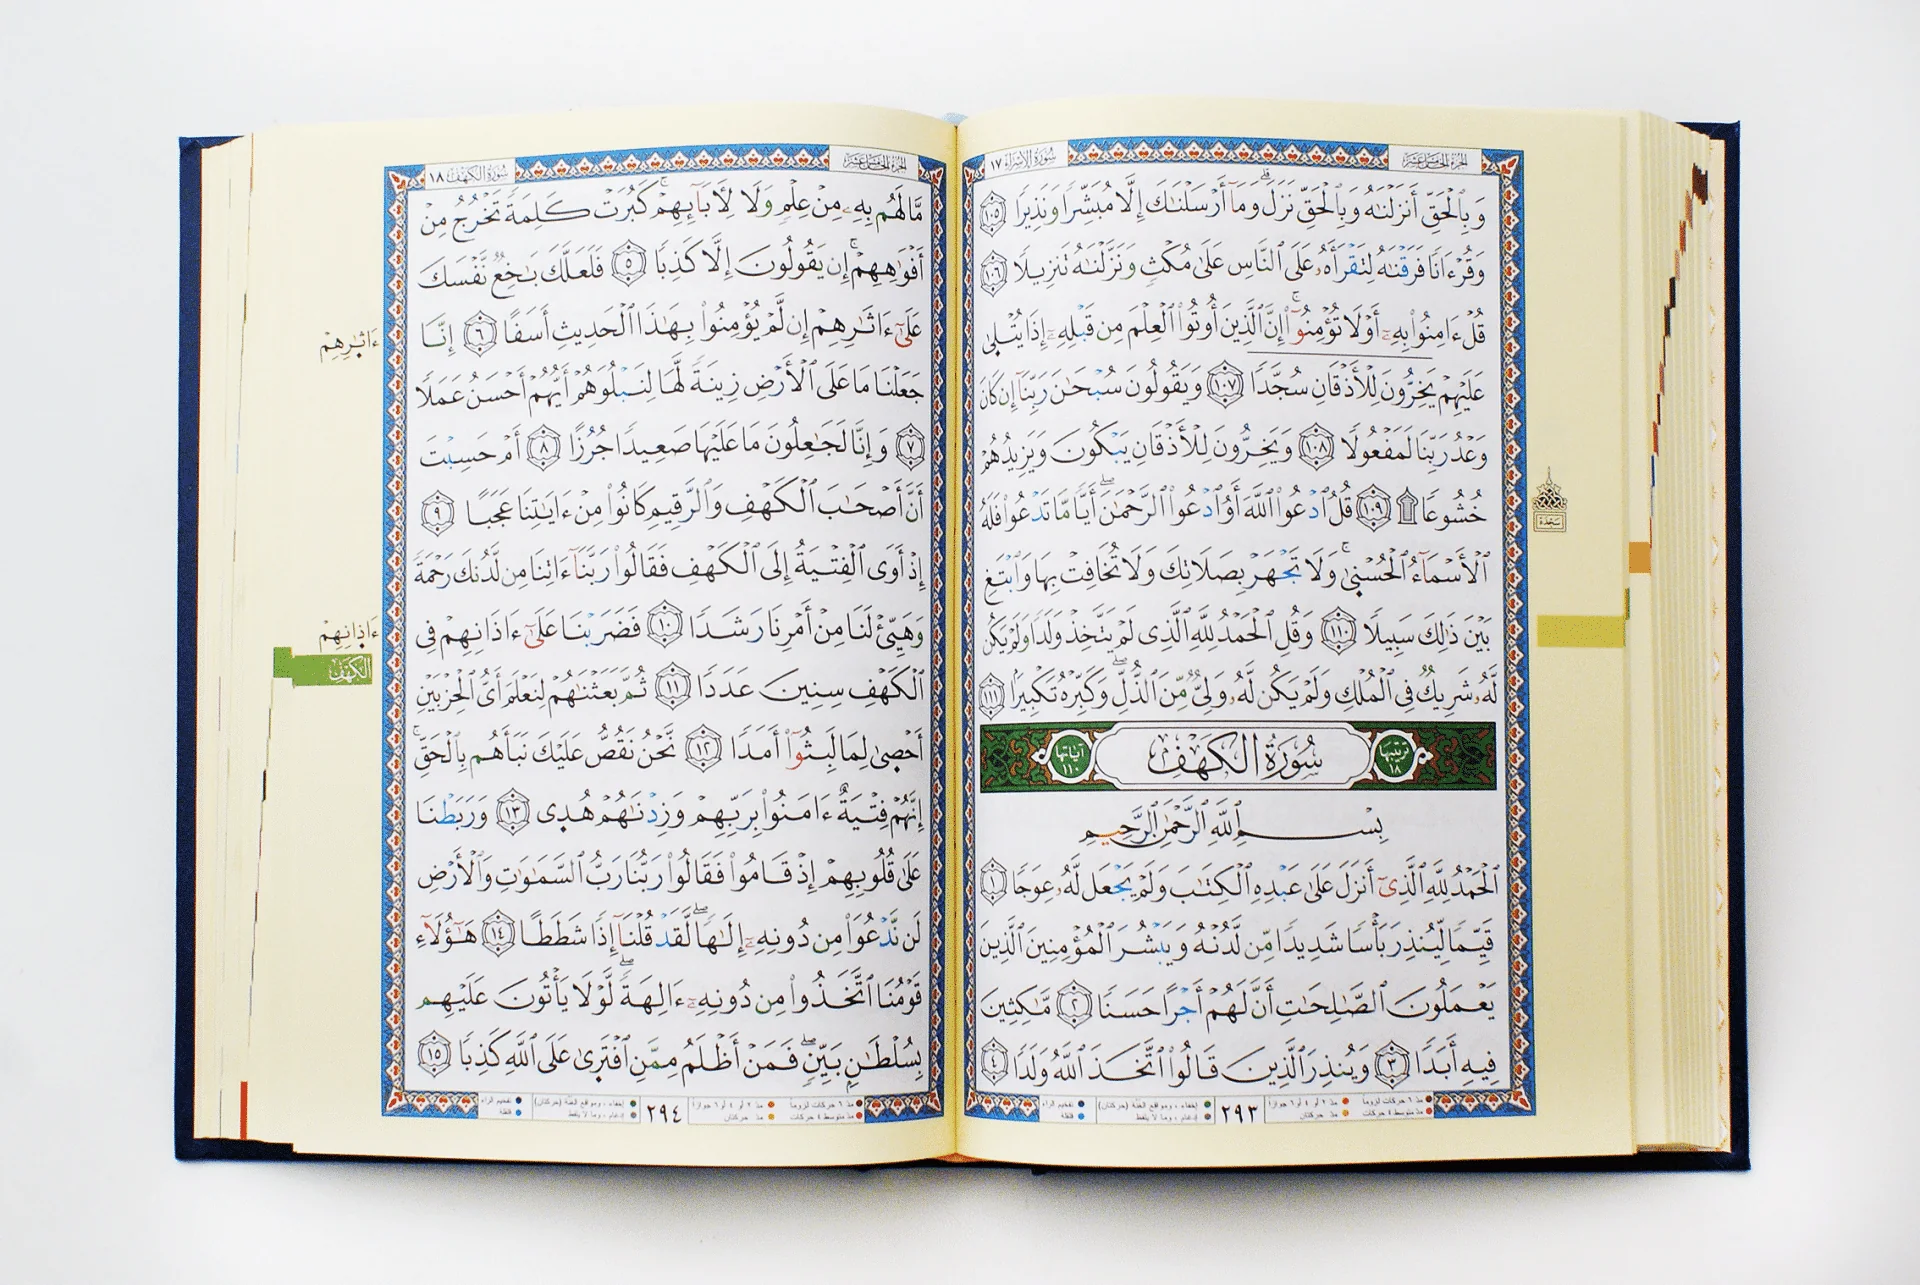 سورة الإسراء ١٧
الجزء الخامس عشر
وَبِٱلْحَقِّ أَنزَلْنَـٰهُ وَبِٱلْحَقِّ نَزَلَ ۗ وَمَآ أَرْسَلْنَـٰكَ إِلَّا مُبَشِّرًا وَنَذِيرًا ١٠٥
وَقُرْءَانًا فَرَقْنَـٰهُ لِتَقْرَأَهُۥ عَلَى ٱلنَّاسِ عَلَىٰ مُكْثٍ وَنَزَّلْنَـٰهُ تَنزِيلًا ١٠٦
قُلْ ءَامِنُوا۟ بِهِۦٓ أَوْ لَا تُؤْمِنُوٓا۟ ۚ إِنَّ ٱلَّذِينَ أُوتُوا۟ ٱلْعِلْمَ مِن قَبْلِهِۦٓ إِذَا يُتْلَىٰ
عَلَيْهِمْ يَخِرُّونَ لِلْأَذْقَانِ سُجَّدًا ١٠٧ وَيَقُولُونَ سُبْحَـٰنَ رَبِّنَآ إِن كَانَ
وَعْدُ رَبِّنَا لَمَفْعُولًا ١٠٨ وَيَخِرُّونَ لِلْأَذْقَانِ يَبْكُونَ وَيَزِيدُهُمْ
خُشُوعًا ۩ ١٠٩ قُلِ ٱدْعُوا۟ ٱللَّهَ أَوِ ٱدْعُوا۟ ٱلرَّحْمَـٰنَ ۖ أَيًّا مَّا تَدْعُوا۟ فَلَهُ
ٱلْأَسْمَآءُ ٱلْحُسْنَىٰ ۚ وَلَا تَجْهَرْ بِصَلَاتِكَ وَلَا تُخَافِتْ بِهَا وَٱبْتَغِ
بَيْنَ ذَٰلِكَ سَبِيلًا ١١٠ وَقُلِ ٱلْحَمْدُ لِلَّهِ ٱلَّذِى لَمْ يَتَّخِذْ وَلَدًا وَلَمْ يَكُن
لَّهُۥ شَرِيكٌ فِى ٱلْمُلْكِ وَلَمْ يَكُن لَّهُۥ وَلِىٌّ مِّنَ ٱلذُّلِّ ۖ وَكَبِّرْهُ تَكْبِيرًۢا ١١١
ترتيبها ١٨ سُورَةُ الكَهْفِ آياتها ١١٠
بِسْمِ ٱللَّهِ ٱلرَّحْمَـٰنِ ٱلرَّحِيمِ
ٱلْحَمْدُ لِلَّهِ ٱلَّذِىٓ أَنزَلَ عَلَىٰ عَبْدِهِ ٱلْكِتَـٰبَ وَلَمْ يَجْعَل لَّهُۥ عِوَجَا ١
قَيِّمًا لِّيُنذِرَ بَأْسًا شَدِيدًا مِّن لَّدُنْهُ وَيُبَشِّرَ ٱلْمُؤْمِنِينَ ٱلَّذِينَ
يَعْمَلُونَ ٱلصَّـٰلِحَـٰتِ أَنَّ لَهُمْ أَجْرًا حَسَنًا ٢ مَّـٰكِثِينَ
فِيهِ أَبَدًا ٣ وَيُنذِرَ ٱلَّذِينَ قَالُوا۟ ٱتَّخَذَ ٱللَّهُ وَلَدًا ٤
٢٩٣
سجدة
سورة الكهف ١٨
الجزء الخامس عشر
مَّا لَهُم بِهِۦ مِنْ عِلْمٍ وَلَا لِـَٔابَآئِهِمْ ۚ كَبُرَتْ كَلِمَةً تَخْرُجُ مِنْ
أَفْوَٰهِهِمْ ۚ إِن يَقُولُونَ إِلَّا كَذِبًا ٥ فَلَعَلَّكَ بَـٰخِعٌ نَّفْسَكَ
عَلَىٰٓ ءَاثَـٰرِهِمْ إِن لَّمْ يُؤْمِنُوا۟ بِهَـٰذَا ٱلْحَدِيثِ أَسَفًا ٦ إِنَّا
جَعَلْنَا مَا عَلَى ٱلْأَرْضِ زِينَةً لَّهَا لِنَبْلُوَهُمْ أَيُّهُمْ أَحْسَنُ عَمَلًا
٧ وَإِنَّا لَجَـٰعِلُونَ مَا عَلَيْهَا صَعِيدًا جُرُزًا ٨ أَمْ حَسِبْتَ
أَنَّ أَصْحَـٰبَ ٱلْكَهْفِ وَٱلرَّقِيمِ كَانُوا۟ مِنْ ءَايَـٰتِنَا عَجَبًا ٩
إِذْ أَوَى ٱلْفِتْيَةُ إِلَى ٱلْكَهْفِ فَقَالُوا۟ رَبَّنَآ ءَاتِنَا مِن لَّدُنكَ رَحْمَةً
وَهَيِّئْ لَنَا مِنْ أَمْرِنَا رَشَدًا ١٠ فَضَرَبْنَا عَلَىٰٓ ءَاذَانِهِمْ فِى
ٱلْكَهْفِ سِنِينَ عَدَدًا ١١ ثُمَّ بَعَثْنَـٰهُمْ لِنَعْلَمَ أَىُّ ٱلْحِزْبَيْنِ
أَحْصَىٰ لِمَا لَبِثُوٓا۟ أَمَدًا ١٢ نَّحْنُ نَقُصُّ عَلَيْكَ نَبَأَهُم بِٱلْحَقِّ ۚ
إِنَّهُمْ فِتْيَةٌ ءَامَنُوا۟ بِرَبِّهِمْ وَزِدْنَـٰهُمْ هُدًى ١٣ وَرَبَطْنَا
عَلَىٰ قُلُوبِهِمْ إِذْ قَامُوا۟ فَقَالُوا۟ رَبُّنَا رَبُّ ٱلسَّمَـٰوَٰتِ وَٱلْأَرْضِ
لَن نَّدْعُوَا۟ مِن دُونِهِۦٓ إِلَـٰهًا ۖ لَّقَدْ قُلْنَآ إِذًا شَطَطًا ١٤ هَـٰٓؤُلَآءِ
قَوْمُنَا ٱتَّخَذُوا۟ مِن دُونِهِۦٓ ءَالِهَةً ۖ لَّوْلَا يَأْتُونَ عَلَيْهِم
بِسُلْطَـٰنٍۭ بَيِّنٍ ۖ فَمَنْ أَظْلَمُ مِمَّنِ ٱفْتَرَىٰ عَلَى ٱللَّهِ كَذِبًا ١٥
٢٩٤
ءَاثَـٰرِهِمْ
ءَاذَانِهِمْ
الكهف